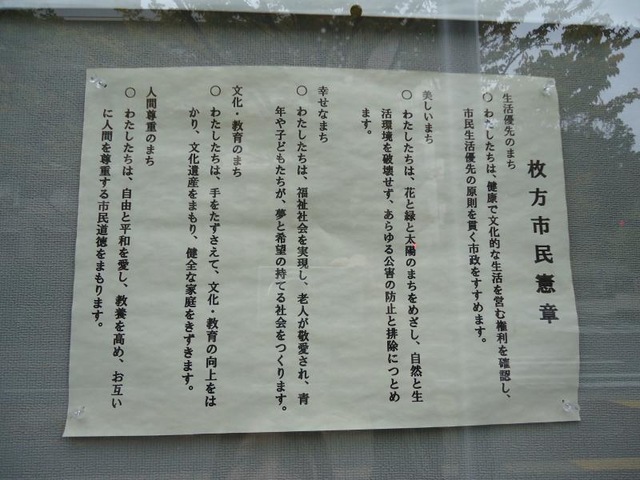 枚方市民憲章
生活優先のまち
○ わたしたちは、健康で文化的な生活を営む権利を確認し、
市民生活優先の原則を貫く市政をすすめます。
美しいまち
○ わたしたちは、花と緑と太陽のまちをめざし、自然と生
活環境を破壊せず、あらゆる公害の防止と排除につとめ
ます。
幸せなまち
○ わたしたちは、福祉社会を実現し、老人が敬愛され、青
年や子どもたちが、夢と希望の持てる社会をつくります。
文化・教育のまち
○ わたしたちは、手をたずさえて、文化・教育の向上をは
かり、文化遺産をまもり、健全な家庭をきずきます。
人間尊重のまち
○ わたしたちは、自由と平和を愛し、教養を高め、お互い
に人間を尊重する市民道徳をまもります。